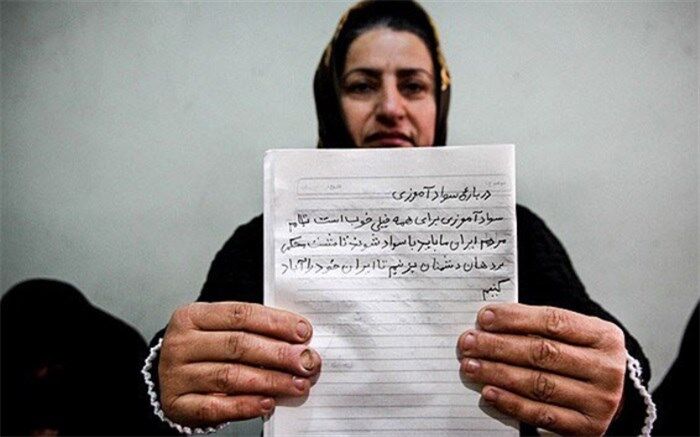 درباره‌ی سوادآموزی
سوادآموزی برای همه خیلی خوب است تمام
مردم ایران ما باید با سواد شوند تا مشت محکمی
بر دهان دشمنان بزنیم تا ایران خود را آباد
کنیم